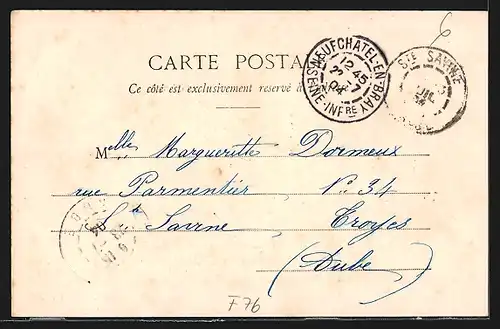 6
CARTE POSTA
Ce côté est exclusivement reservé à
NEUFCHATEL-EN-BRAY
12 45
22 - 7
04
SEINE INFRE
STE SAVINE
AUBE
Melle Marguerite Dormeux
rue Parmentier No 34
Ste Savine Troyes
(Aube)
F76